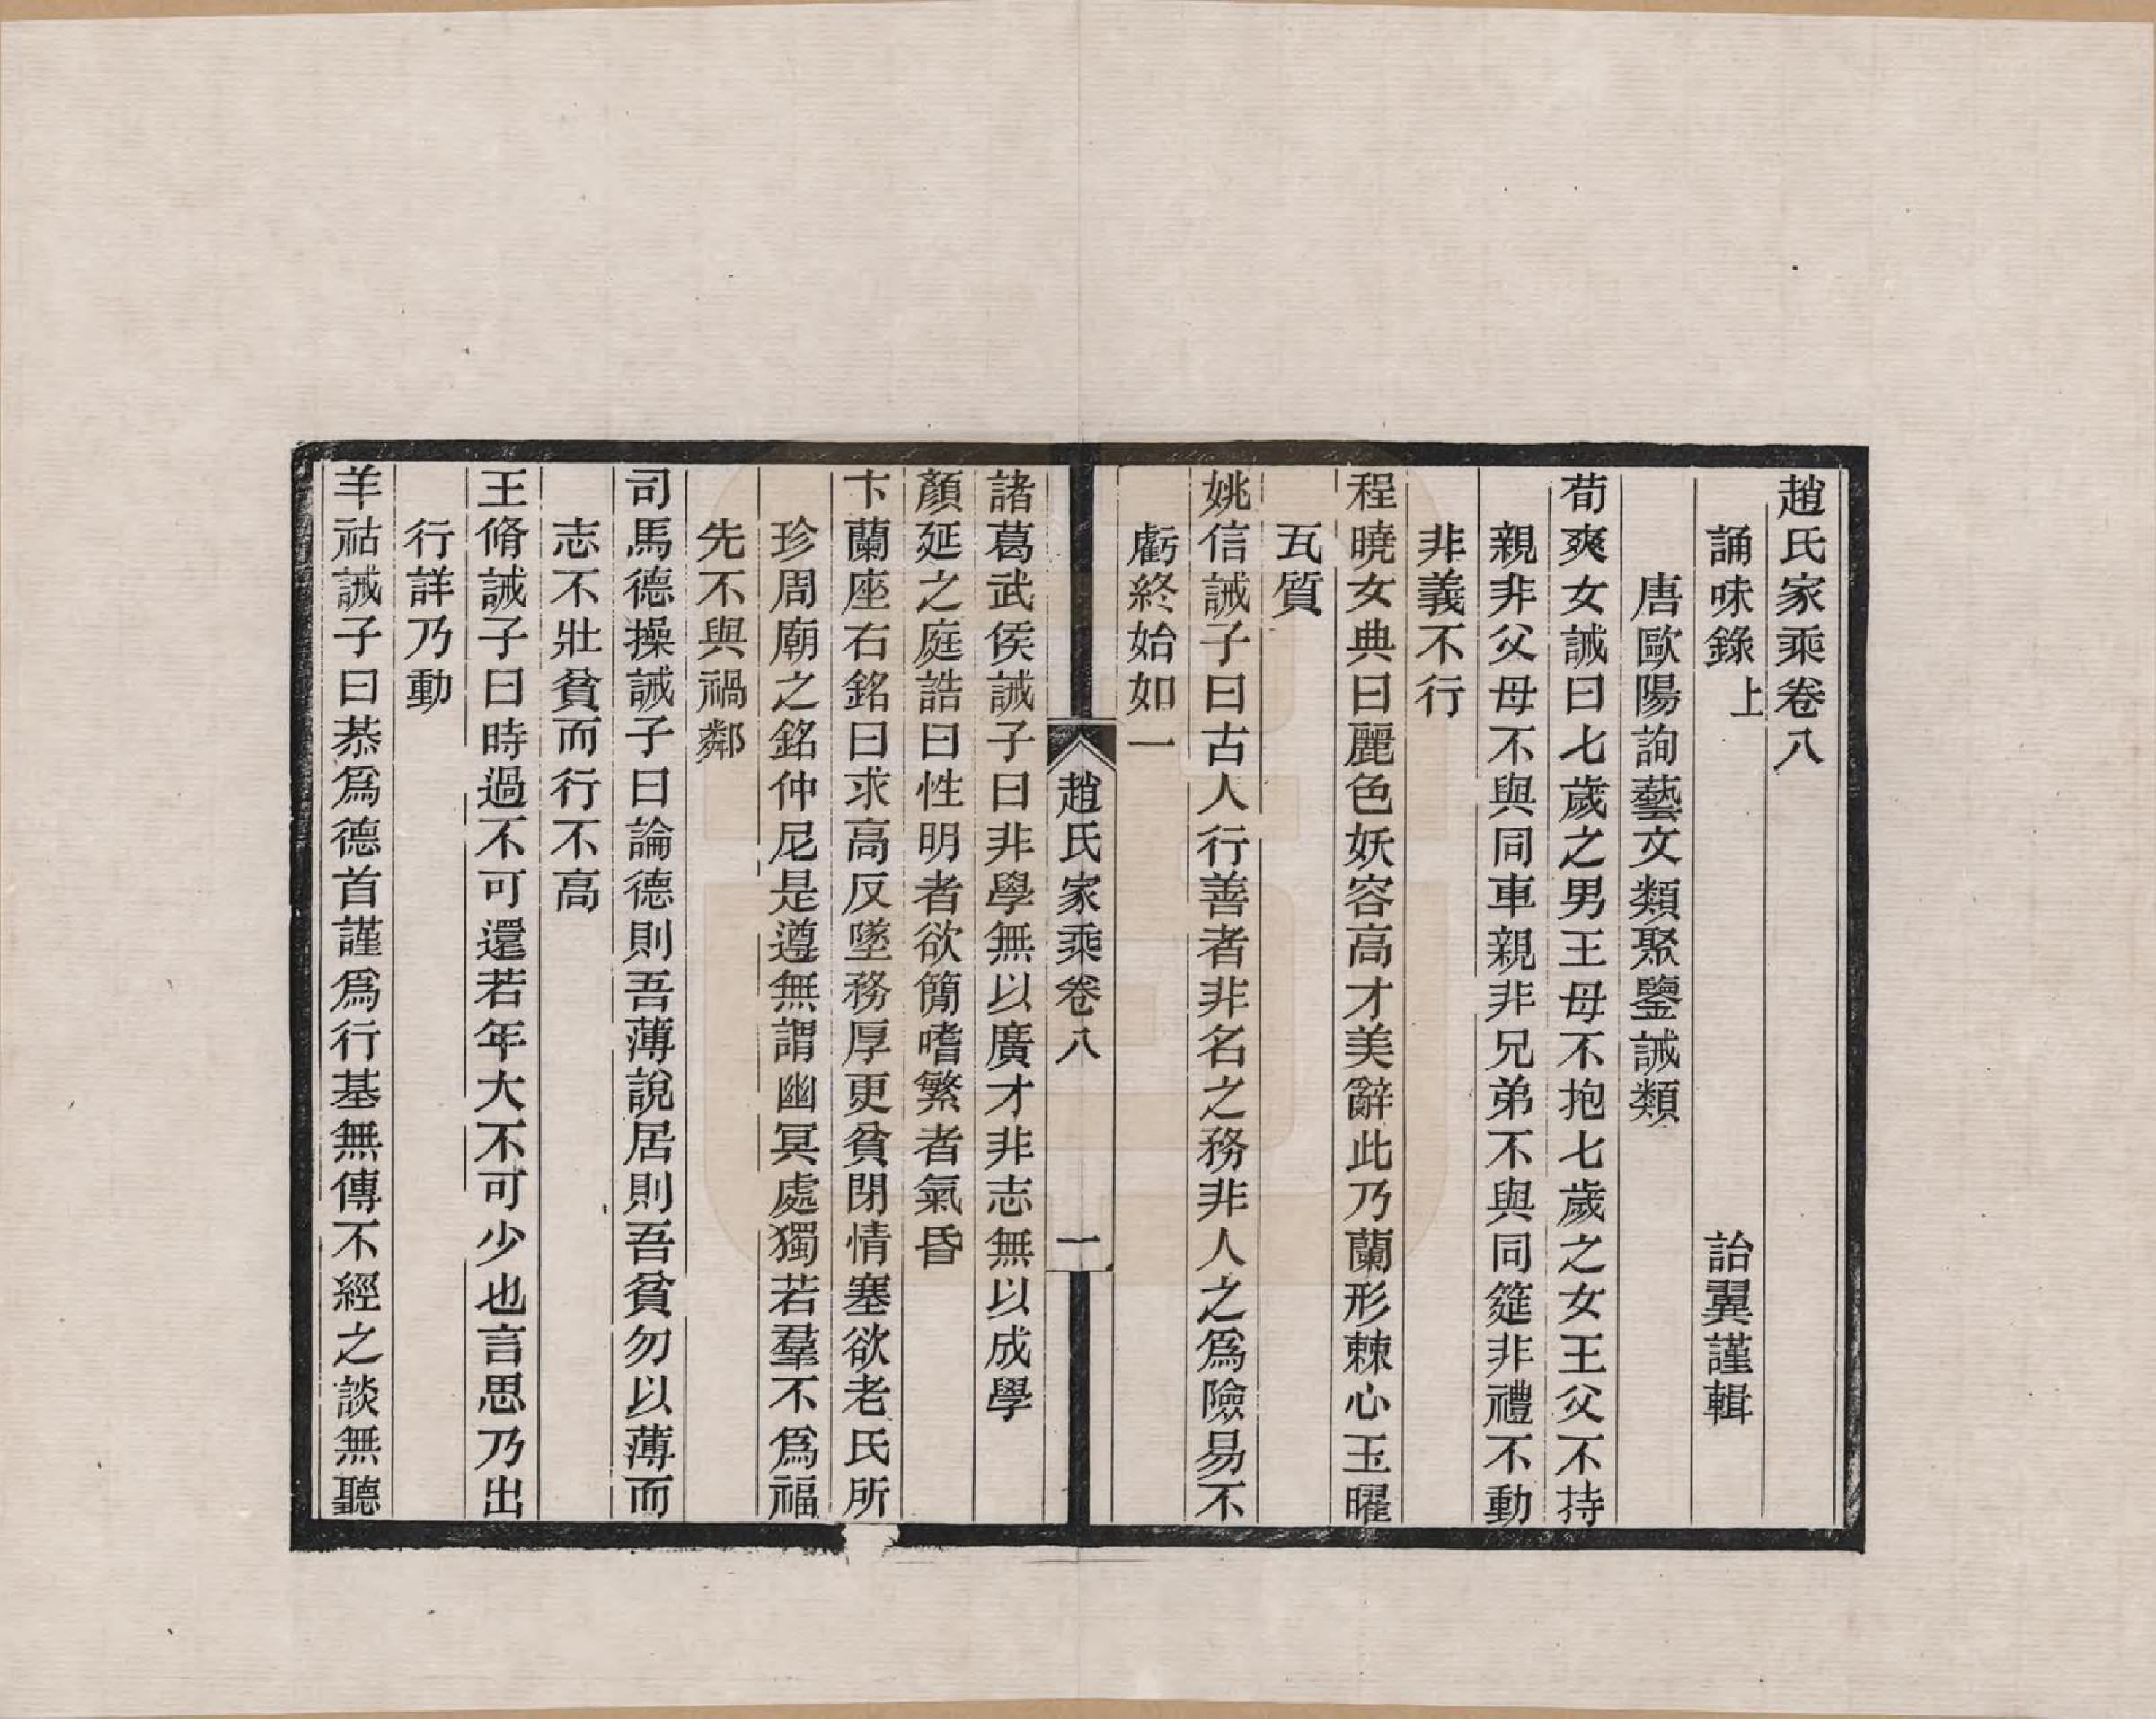 趙氏家乘卷八
誦味錄上　詒翼謹輯
唐歐陽詢藝文類聚鑒誡類
荀爽女誡曰七歲之男王母不抱七歲之女王父不持
親非父母不與同車親非兄弟不與同筵非禮不動
非義不行
程曉女典曰麗色妖容高才美辭此乃蘭形棘心玉曜
瓦質
姚信誡子曰古人行善者非名之務非人之爲險易不
虧終始如一
趙氏家乘卷八　一
諸葛武侯誡子曰非學無以廣才非志無以成學
顏延之庭誥曰性明者欲簡嗜繁者氣昏
卞蘭座右銘曰求高反墜務厚更貧閉情塞欲老氏所
珍周廟之銘仲尼是遵無謂幽冥處獨若羣不爲福
先不與禍鄰
司馬德操誡子曰論德則吾薄說居則吾貧勿以薄而
志不壯貧而行不高
王脩誡子曰時過不可還若年大不可少也言思乃出
行詳乃動
羊祜誡子曰恭爲德首謹爲行基無傳不經之談無聽